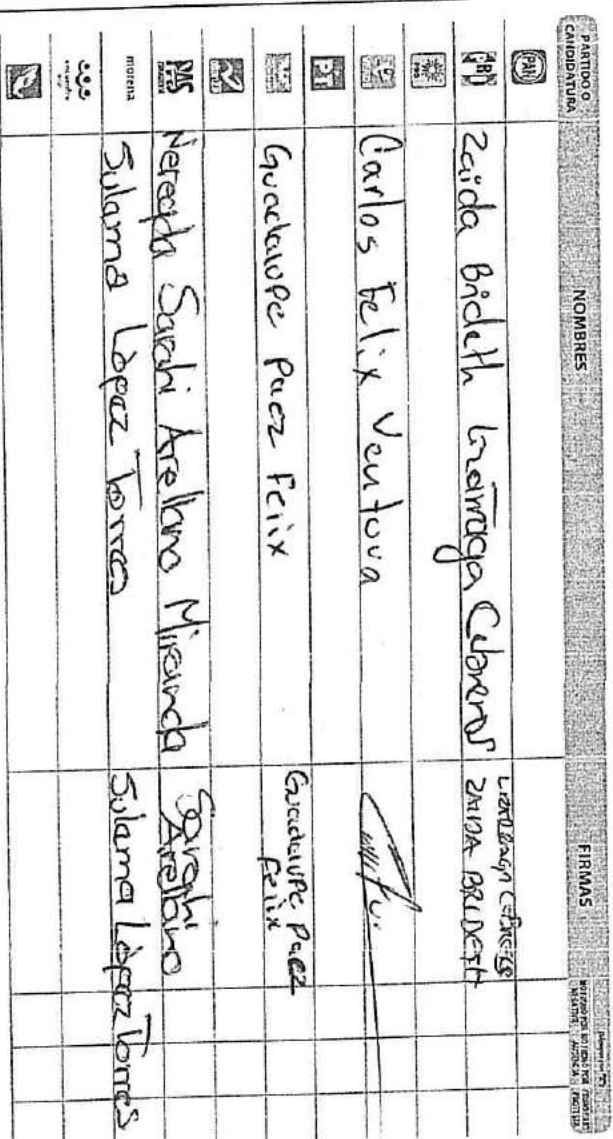 PARTIDO O
CANDIDATURA
NOMBRES
FIRMAS
PAN
PRD
Zaida Brideth Lizarraga Cabreros
ZAIDA BRIDETH
Carlos Felix Ventura
PT
Guadalupe Paez Felix
Guadalupe Paez
Felix
PAS
Nereyda Sarahi Arellano Miranda
Sarahi
Arellano
morena
Sulama López Torres
Sulama López Torres
encuentro